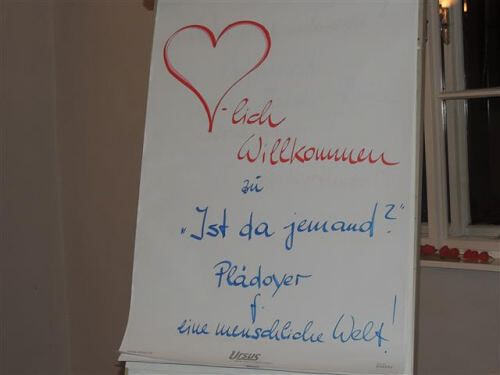 -lich
Willkommen
zu
„Ist da jemand?"
Plädoyer
f.
eine menschliche Welt!
Ursus